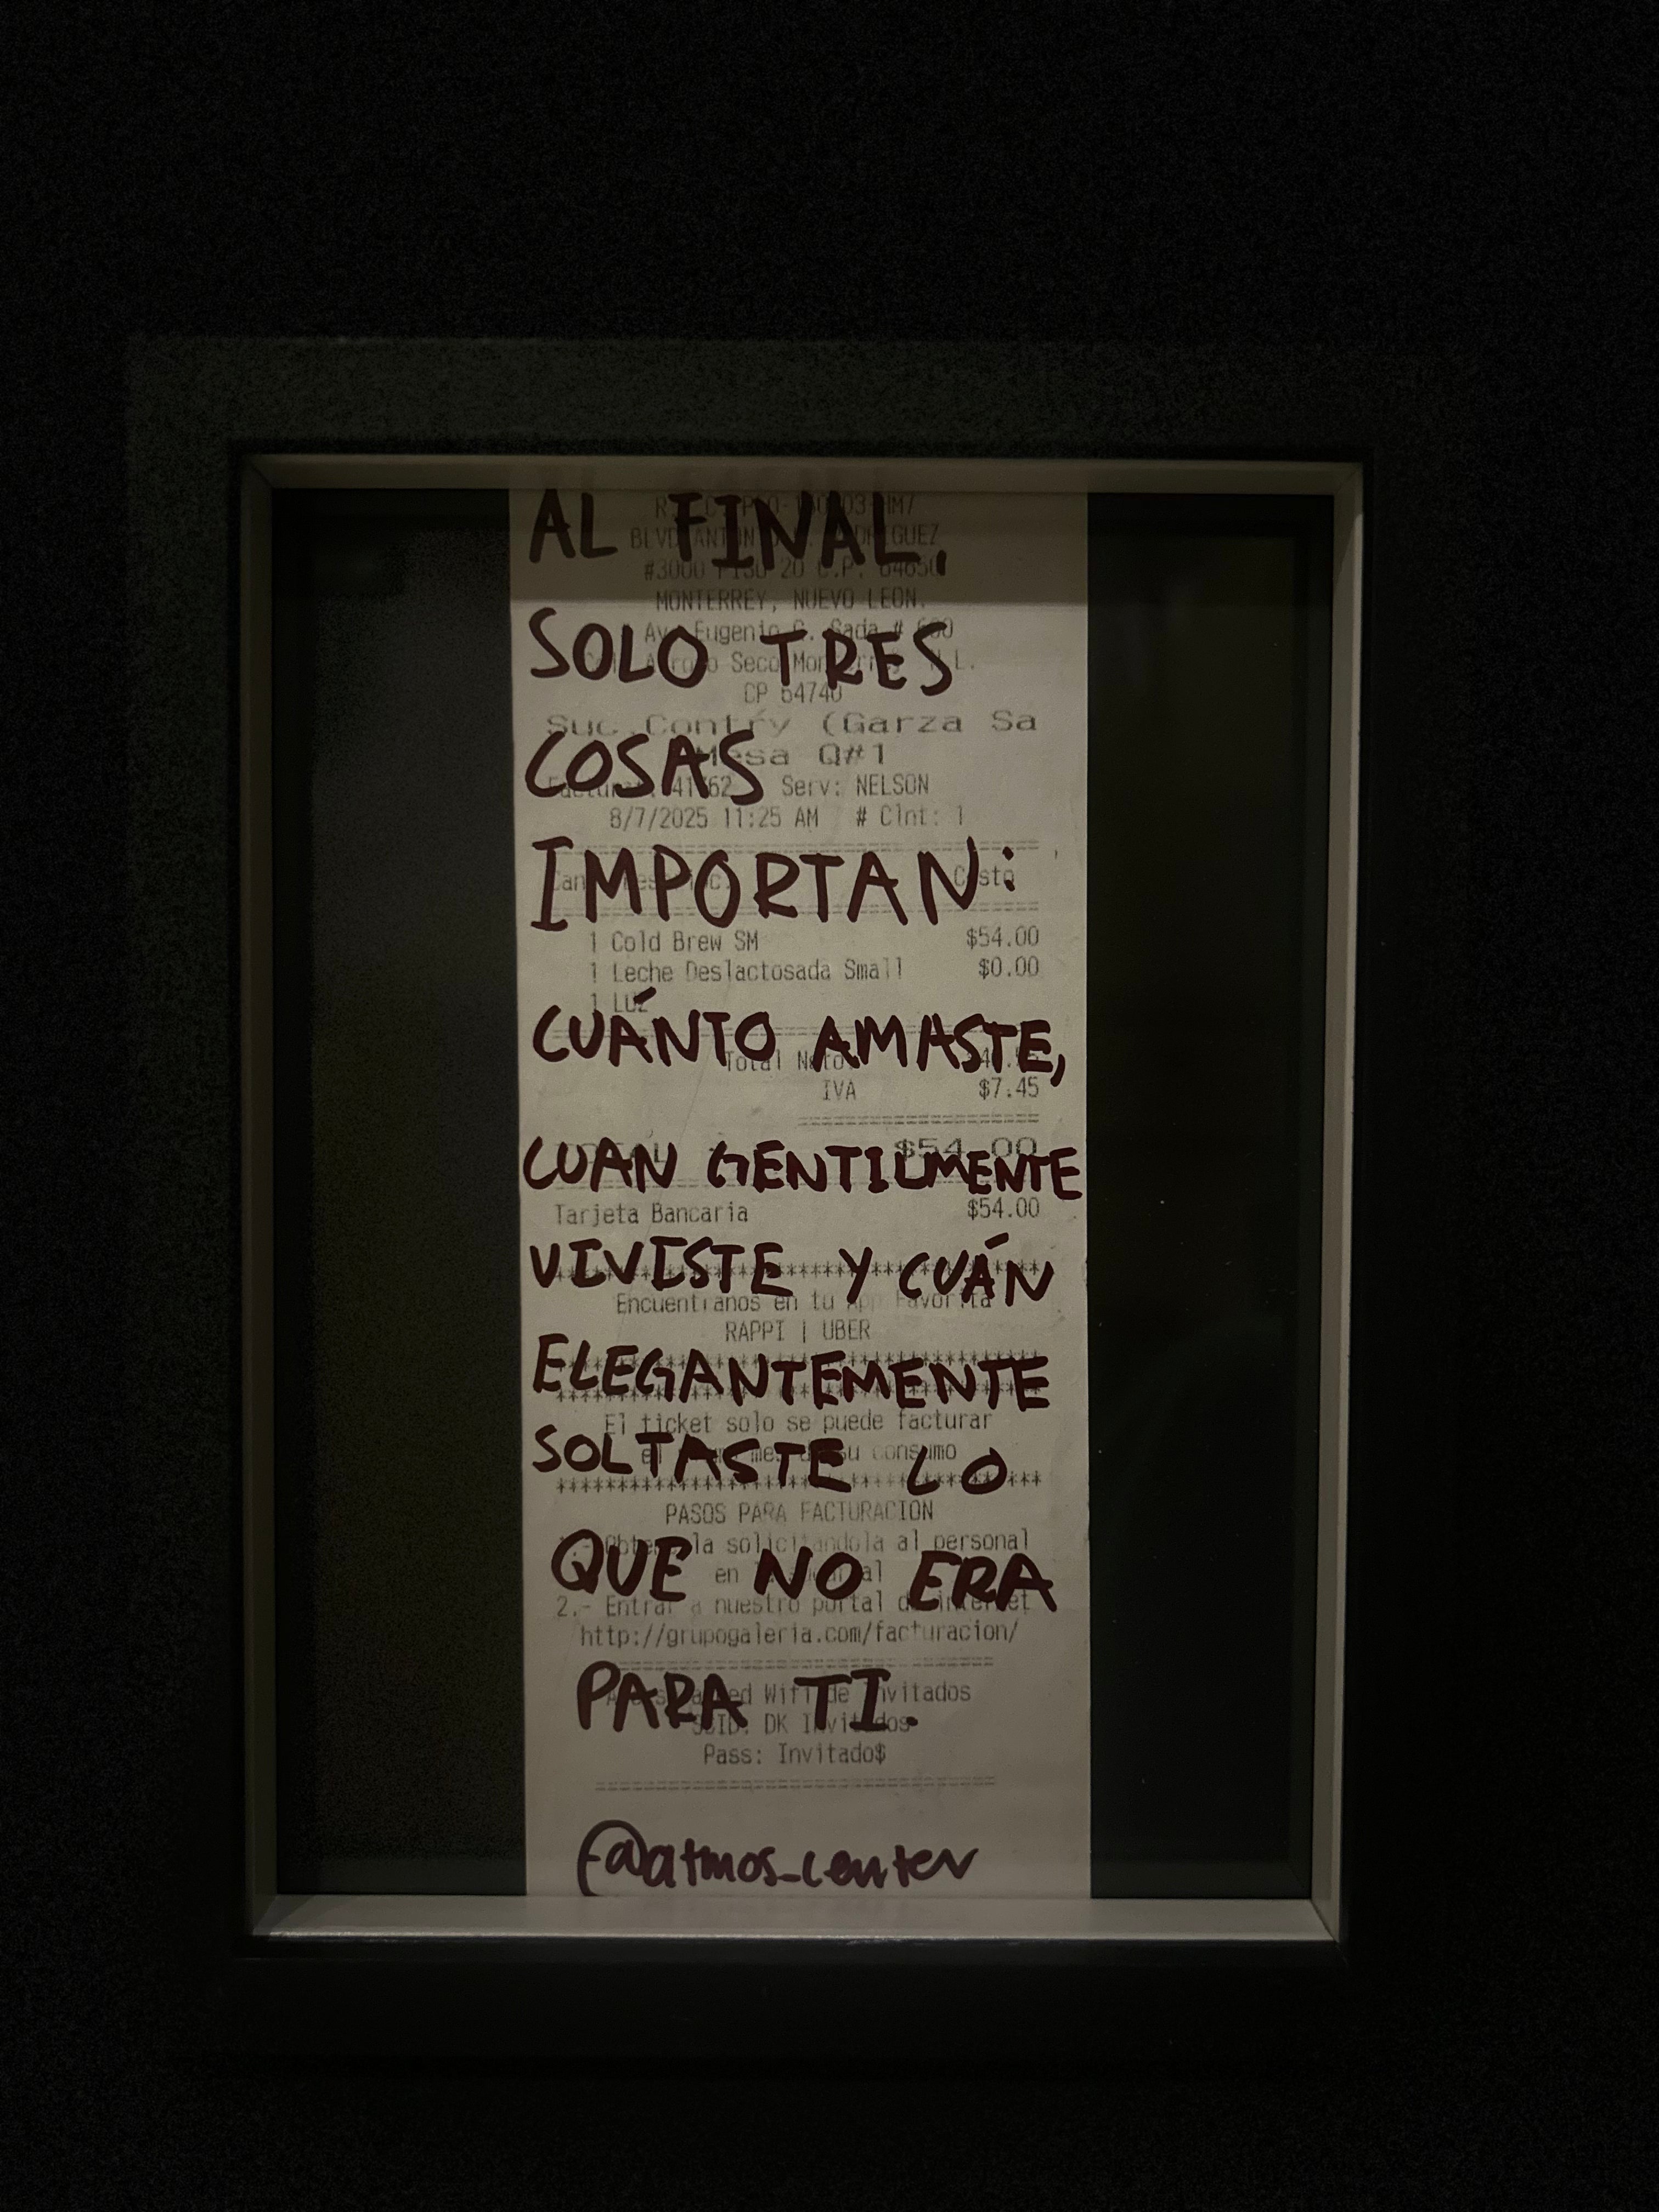 AL FINAL,
BLVD ANTON
#3000 PISO 20 C.P. 64650
MONTERREY, NUEVO LEON.
Av. Eugenio G. Sada #
SOLO TRES
Seco
CP 64740
Suc. Contry (Garza Sa
Mesa Q#1
COSAS
Serv: NELSON
8/7/2025 11:25 AM # Clnt: 1
IMPORTAN:
Costo
1 Cold Brew SM $54.00
1 Leche Deslactosada Small $0.00
1 LUZ
CUÁNTO AMASTE,
Total Neto
IVA $7.45
$54.00
CUAN GENTILMENTE
Tarjeta Bancaria $54.00
VIVISTE Y CUÁN
Encuentranos en tu App Favorita
RAPPI | UBER
ELEGANTEMENTE
El ticket solo se puede facturar
su consumo
SOLTASTE LO
PASOS PARA FACTURACION
solicitandola al personal
en
QUE NO ERA
2.- Entrar a nuestro portal de internet
http://grupogaleria.com/facturacion/
PARA TI.
Wifi de Invitados
SSID: DK Invitados
Pass: Invitado$
@atmos_center